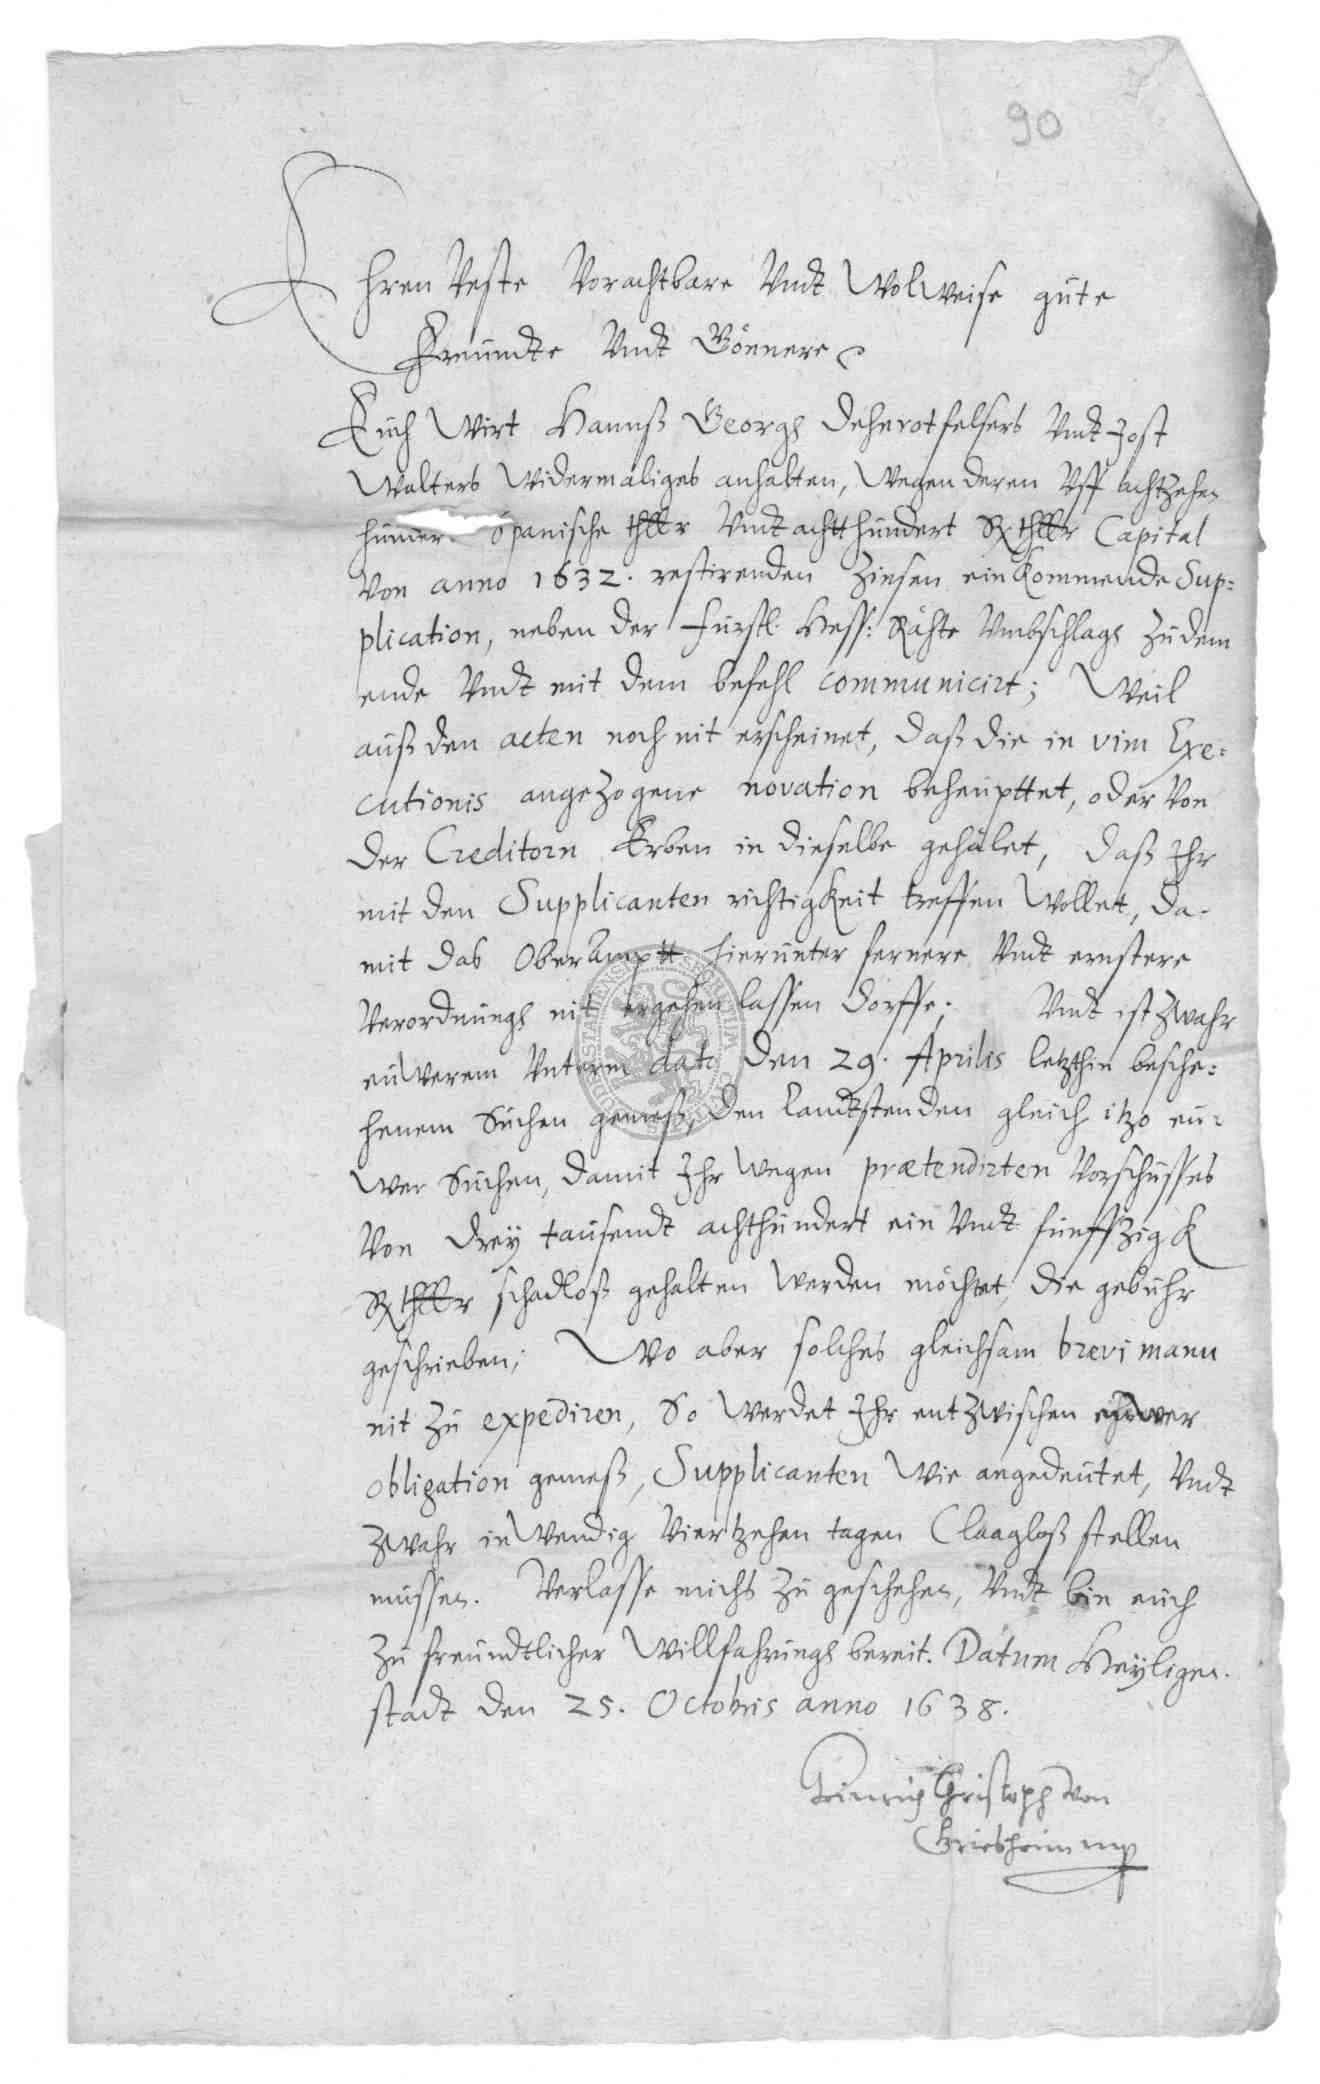 90
Ehren Veste Vorachtbare Undt Wolweise gute
Freundte Undt Gönnere
Euch Wirt Hannß Georgs Deherotfelsers Undt Jost
Walters Widermaliges anhalten, Wegen deren Uff achtzehen
Spanische thllr Undt achtthundert Rthllr Capital
Von anno 1632. restirenden Zinsen einkommende Sup=
plication, neben der Fürstl. Hess: Rähte Umbschlags zudem
ende Undt mit dem befehl communicirt; Weil
auß den acten noch nit erscheinet, daß die in vim Exe=
cutionis angezogene novation beheupttet, oder Von
der Creditorn Erben in dieselbe gehälet, daß Ihr
mit den Supplicanten richtigkeit treffen Wollet, da-
mit das OberAmptt hierunter fernere Undt ernstere
Verordnungs nit ergehen lassen dörffe; Undt ist zwahr
euwerem Unterm dato den 29. Aprilis letzthin besche=
henem Suchen gemeß, den landtstenden gleich itzo eu=
wer Suchen, damit Ihr wegen prætendirten Vorschusses
Von drey tausendt achthundert ein Undt fünffzigk
Rthllr schadloß gehalten werden möchtet, die gebühr
geschrieben; Wo aber solches gleichsam brevi manu
nit zu expediren, So werdet Ihr entzwischen euwer
obligation gemeß, Supplicanten Wie angedeutet, Undt
zwahr inwendig Viertzehen tagen Claagloß stellen
müssen. Verlasse michs zu geschehen, Undt bin euch
zu freundtlicher Willfahrungs bereit. Datum Heyligen-
stadt den 25. Octobris anno 1638.
Heinrich Christoph Von
Griesheim mp